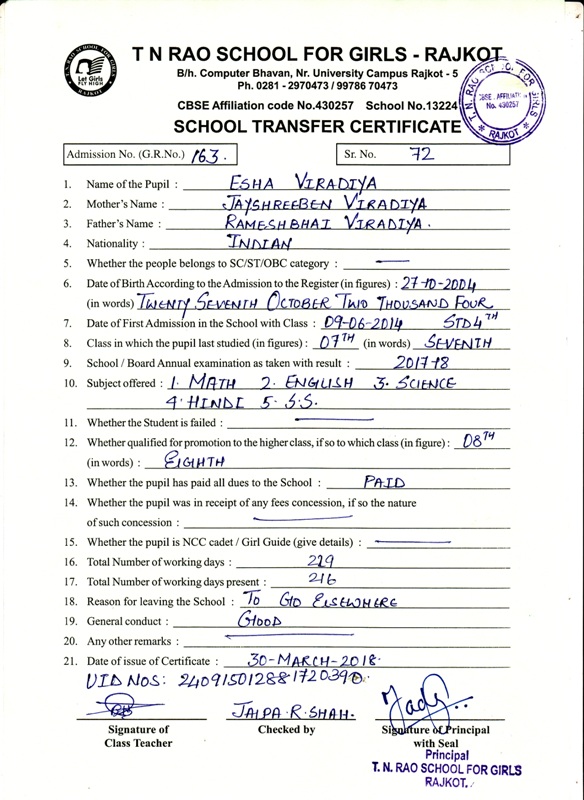 T. N. RAO SCHOOL FOR GIRLS
RAJKOT
Let Girls
FLY HIGH
T N RAO SCHOOL FOR GIRLS - RAJKOT
B/h. Computer Bhavan, Nr. University Campus Rajkot - 5
Ph. 0281 - 2970473 / 99786 70473
CBSE Affiliation code No.430257 School No.13224
T. N. RAO SCHOOL FOR GIRLS
CBSE. AFFILIATE
No. 430257
* RAJKOT *
SCHOOL TRANSFER CERTIFICATE
Admission No. (G.R.No.) 163. Sr. No. 72
1. Name of the Pupil : ESHA VIRADIYA
2. Mother's Name : JAYSHREEBEN VIRADIYA
3. Father's Name : RAMESHBHAI VIRADIYA.
4. Nationality : INDIAN
5. Whether the people belongs to SC/ST/OBC category : —
6. Date of Birth According to the Admission to the Register (in figures) : 27-10-2004
(in words) TWENTY SEVENTH OCTOBER TWO THOUSAND FOUR
7. Date of First Admission in the School with Class : 09-06-2014 STD 4TH
8. Class in which the pupil last studied (in figures) : 07TH (in words) SEVENTH
9. School / Board Annual examination as taken with result : 2017-18
10. Subject offered : 1. MATH 2. ENGLISH 3. SCIENCE
4. HINDI 5. S.S.
11. Whether the Student is failed : —
12. Whether qualified for promotion to the higher class, if so to which class (in figure) : 08TH
(in words) : EIGHTH
13. Whether the pupil has paid all dues to the School : PAID
14. Whether the pupil was in receipt of any fees concession, if so the nature
of such concession : —
15. Whether the pupil is NCC cadet / Girl Guide (give details) : —
16. Total Number of working days : 219
17. Total Number of working days present : 216
18. Reason for leaving the School : TO GO ELSEWHERE
19. General conduct : GOOD
20. Any other remarks : —
21. Date of issue of Certificate : 30-MARCH-2018.
UID NOS: 240915012881720390
JALPA.R.SHAH.
Signature of Checked by Signature of Principal
Class Teacher with Seal
Principal
T. N. RAO SCHOOL FOR GIRLS
RAJKOT.